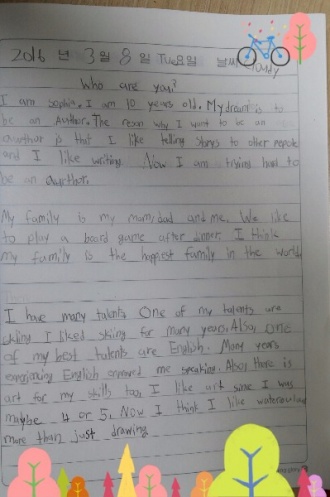 2016 년 3월 8일 Tu요일 날씨 Cloudy
Who are you?
I am Sophia. I am 10 years old. My dream is to
be an Author. The reson why I want to be an
awrthor is that I like telling stories to other
and I like writing. Now I am trying hard to
be an awrthor.
My family is my mom, dad and me. We like
to play a board game after dinner. I think
my family is the happiest family in the world
I have many talents. One of my talents are
skiing I liked skiing for many years. Also, one
of my best talents are English. Many years
English me speaking. Also there is
art for my skills too. I like art since I was
maybe 4 or 5. Now I think I like
more than just drawing